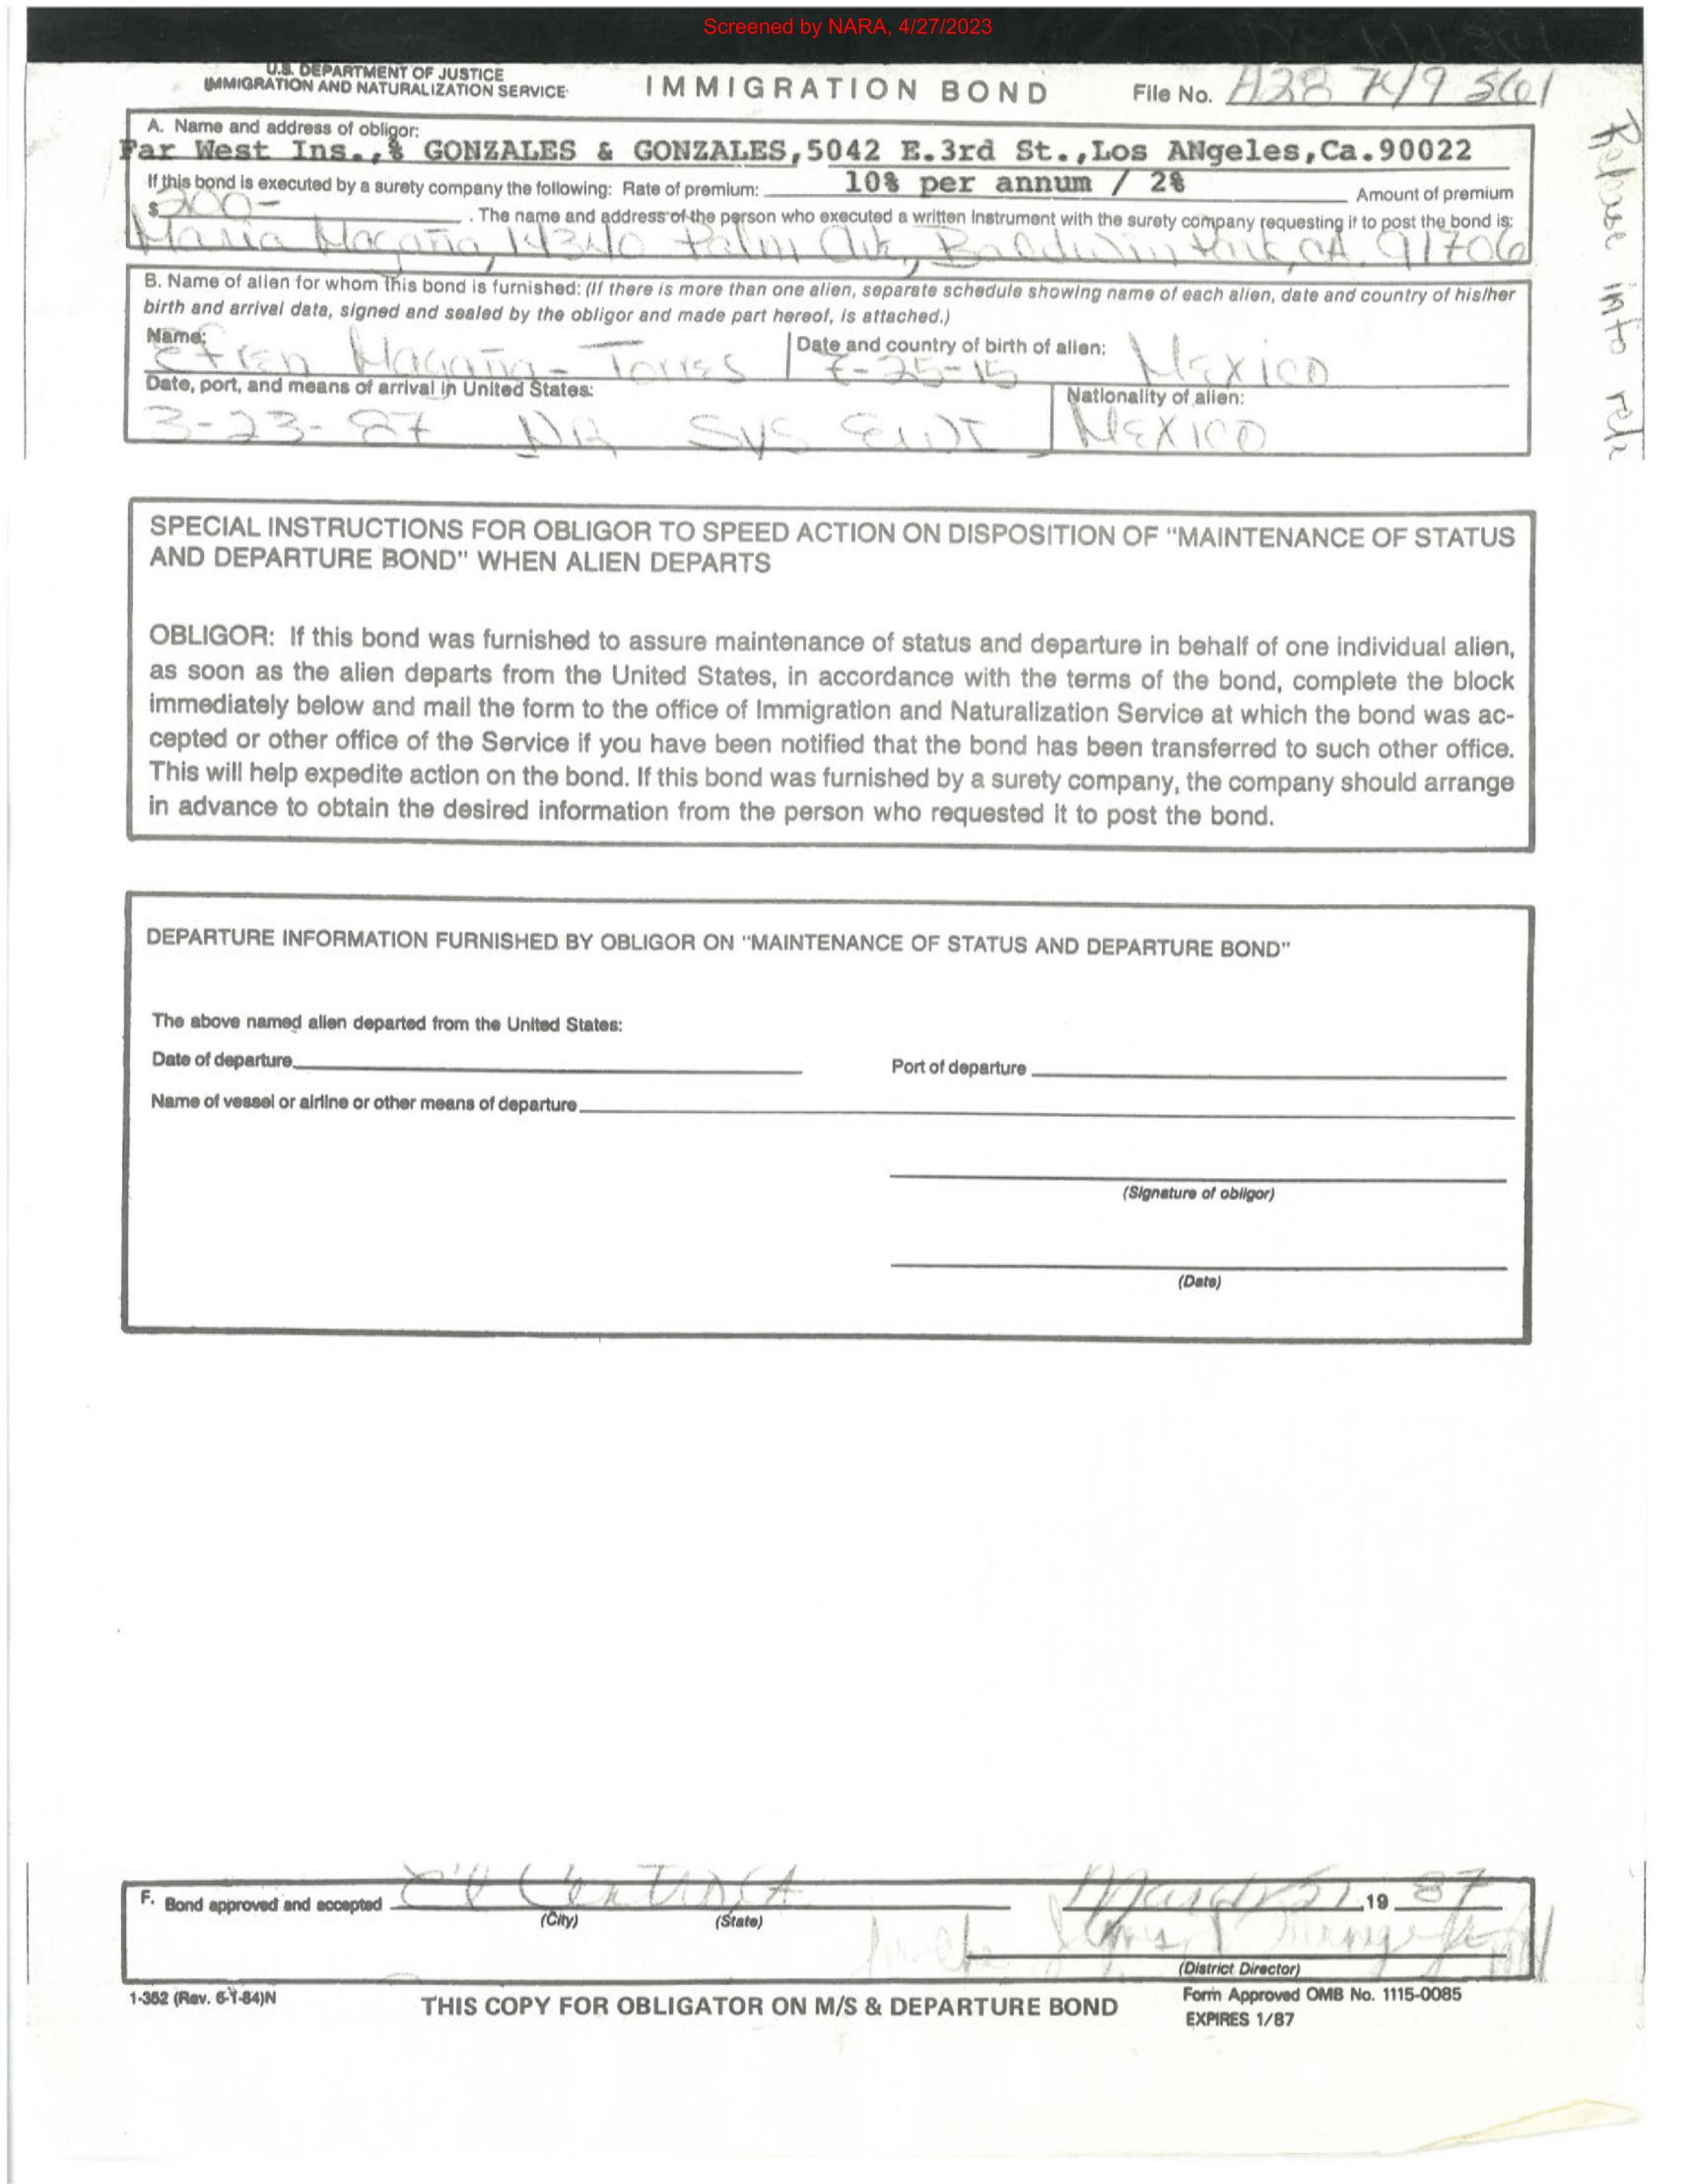 Screened by NARA, 4/27/2023
U.S. DEPARTMENT OF JUSTICE
IMMIGRATION AND NATURALIZATION SERVICE
IMMIGRATION BOND
File No. A28 719 561
A. Name and address of obligor:
Far West Ins.,% GONZALES & GONZALES,5042 E.3rd St.,Los ANgeles,Ca.90022
If this bond is executed by a surety company the following: Rate of premium: 10% per annum / 2% Amount of premium
$ 200- . The name and address of the person who executed a written instrument with the surety company requesting it to post the bond is:
Maria Magaña, Palm Baldwin Park, CA 91706
B. Name of alien for whom this bond is furnished: (If there is more than one alien, separate schedule showing name of each alien, date and country of his/her
birth and arrival data, signed and sealed by the obligor and made part hereof, is attached.)
Name: Efren Magaña-Torres
Date and country of birth of alien: -25-15 Mexico
Date, port, and means of arrival in United States:
3-23-87 SYS EWI
Nationality of alien:
Mexico
Release into
SPECIAL INSTRUCTIONS FOR OBLIGOR TO SPEED ACTION ON DISPOSITION OF "MAINTENANCE OF STATUS
AND DEPARTURE BOND" WHEN ALIEN DEPARTS
OBLIGOR: If this bond was furnished to assure maintenance of status and departure in behalf of one individual alien,
as soon as the alien departs from the United States, in accordance with the terms of the bond, complete the block
immediately below and mail the form to the office of Immigration and Naturalization Service at which the bond was ac-
cepted or other office of the Service if you have been notified that the bond has been transferred to such other office.
This will help expedite action on the bond. If this bond was furnished by a surety company, the company should arrange
in advance to obtain the desired information from the person who requested it to post the bond.
DEPARTURE INFORMATION FURNISHED BY OBLIGOR ON "MAINTENANCE OF STATUS AND DEPARTURE BOND"
The above named alien departed from the United States:
Date of departure
Port of departure
Name of vessel or airline or other means of departure
(Signature of obligor)
(Date)
F. Bond approved and accepted El Centro CA March ,19 87
(City) (State)
(District Director)
1-352 (Rev. 6-1-84)N
THIS COPY FOR OBLIGATOR ON M/S & DEPARTURE BOND
Form Approved OMB No. 1115-0085
EXPIRES 1/87